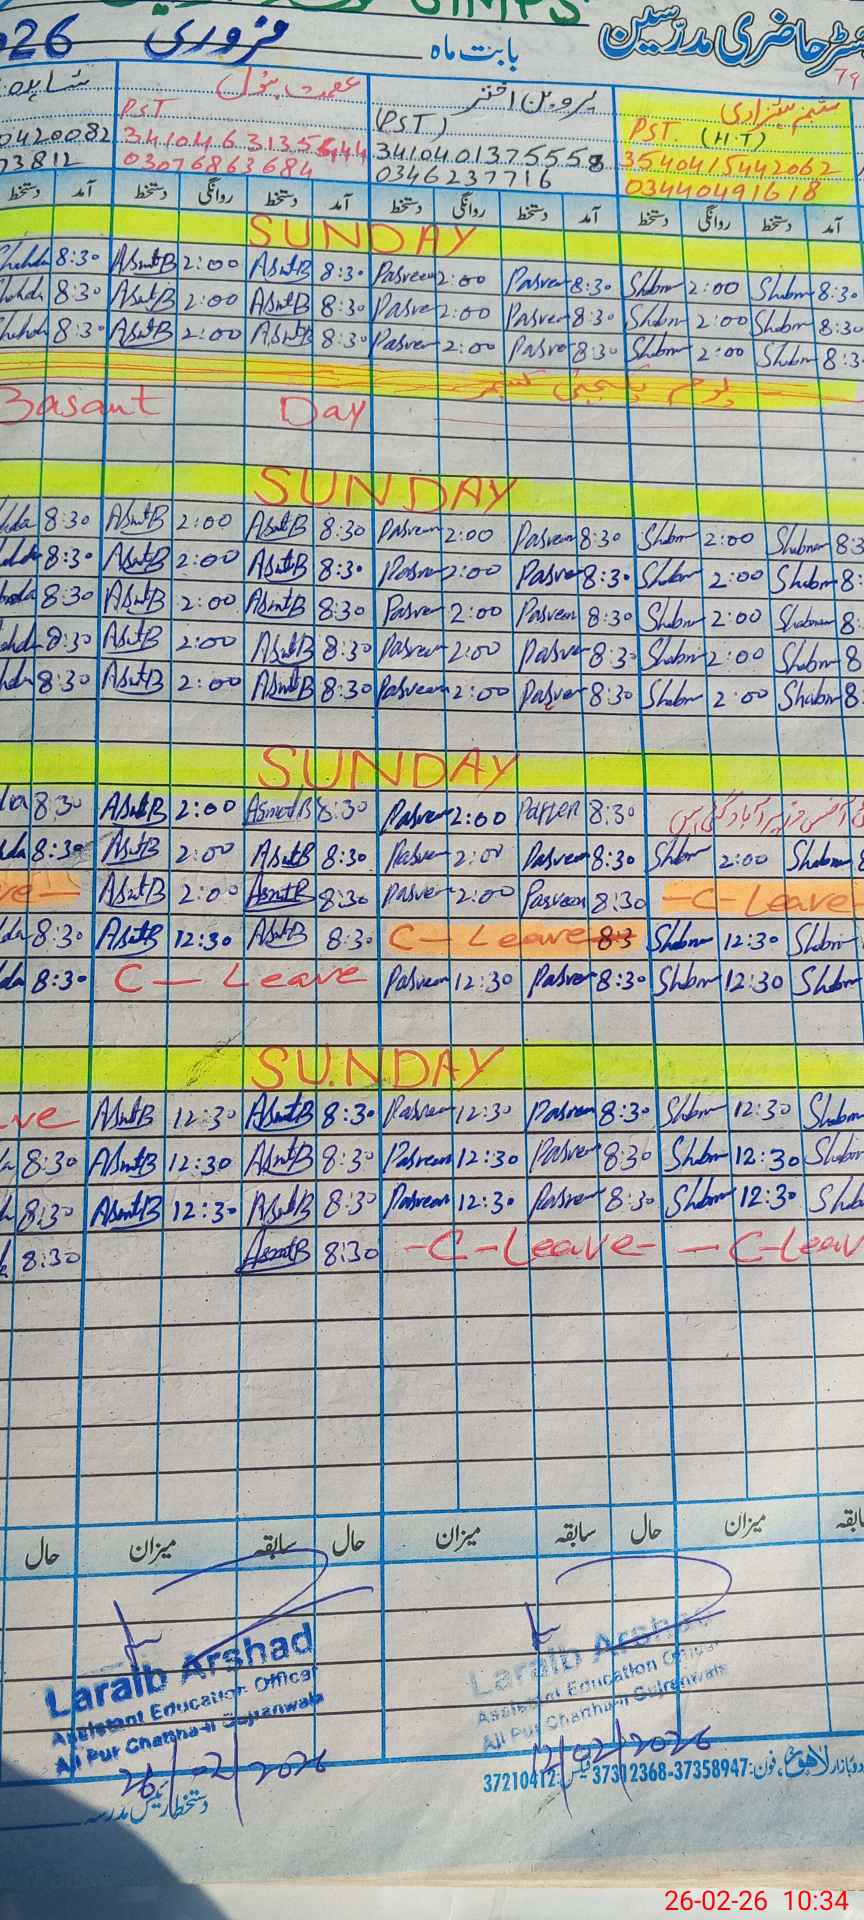 GTMPS
رجسٹر حاضری مدرّسین بابت ماہ فروری 2026
79
پروین اختر عصمت بتول شاہدہ
PST (H.T) (PST) PST
3540415442062 3410401375558 0420082
03440491618 0346237716 03076863684 73812
آمد دستخط روانگی دستخط آمد دستخط روانگی دستخط آمد دستخط روانگی دستخط آمد دستخط
SUNDAY
8:30 AsmtB 2:00 AsmtB 8:30 Pasveen 2:00 Pasveen 8:30 Shbm 2:00 Shbm 8:30
8:30 AsmtB 2:00 AsmtB 8:30 Pasveen 2:00 Pasveen 8:30 Shbm 2:00 Shbm 8:30
8:30 AsmtB 2:00 AsmtB 8:30 Pasveen 2:00 Pasveen 8:30 Shbm 2:00 Shbm 8:3
یوم یکجہتی کشمیر
Basant Day
SUNDAY
8:30 AsmtB 2:00 AsmtB 8:30 Pasveen 2:00 Pasveen 8:30 Shbm 2:00 Shbm 8:3
8:30 AsmtB 2:00 AsmtB 8:30 Pasveen 2:00 Pasveen 8:30 Shbm 2:00 Shbm 8:
8:30 AsmtB 2:00 AsmtB 8:30 Pasveen 2:00 Pasveen 8:30 Shbm 2:00 Shbm 8:
8:30 AsmtB 2:00 AsmtB 8:30 Pasveen 2:00 Pasveen 8:30 Shbm 2:00 Shbm 8
8:30 AsmtB 2:00 AsmtB 8:30 Pasveen 2:00 Pasveen 8:30 Shbm 2:00 Shabm 8
SUNDAY
8:30 AsmtB 2:00 AsmatB 8:30 Pasveen 2:00 Parveen 8:30
8:30 AsmtB 2:00 AsmtB 8:30 Pasveen 2:00 Pasveen 8:30 Shbm 2:00 Shabm 8
ve- AsmtB 2:00 AsmtB 8:30 Pasveen 2:00 Pasveen 8:30 -C-Leave
8:30 AsmtB 12:30 AsmtB 8:30 C-Leave 8:3 Shbm 12:30 Shbm
8:30 C-Leave Pasveen 12:30 Pasveen 8:30 Shbm 12:30 Shbm
SUNDAY
ve AsmtB 12:30 AsmtB 8:30 Pasveen 12:30 Pasveen 8:30 Shbm 12:30 Shbm
8:30 AsmtB 12:30 AsmtB 8:30 Pasveen 12:30 Pasveen 8:30 Shbm 12:30 Shbm
8:30 AsmtB 12:30 AsmtB 8:30 Pasveen 12:30 Pasveen 8:30 Shbm 12:30 Shb
8:30 AsmtB 8:30 -C-Leave- -C-Leav
میزان حال سابقہ میزان حال سابقہ میزان حال
Laraib Arshad
Assistant Education Officer
Ali Pur Chattha-II Gujranwala
26/02/2026
Laraib Arshad
Assistant Education Officer
Ali Pur Chattha-II Gujranwala
12/02/2026
دستخط رئیس مدرسہ
اردو بازار لاہور، فون:37358947-37312368 فیکس:37210412
26-02-26 10:34